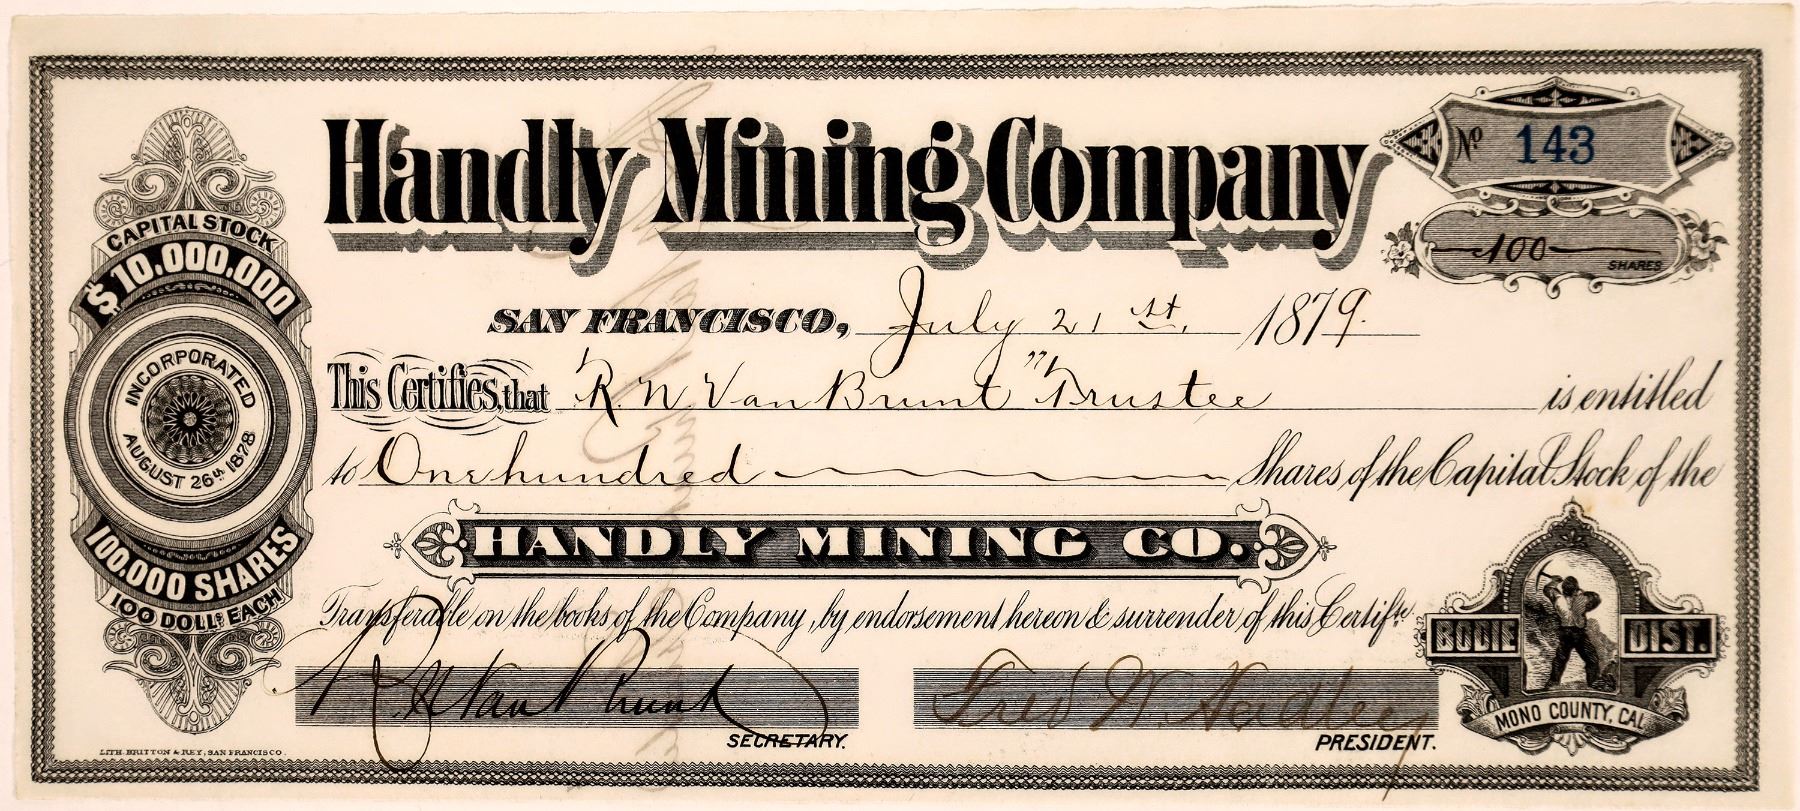 Handly Mining Company
No 143
100 SHARES
CAPITAL STOCK
$10.000.000
INCORPORATED
AUGUST 26th 1878
100.000 SHARES
100 DOLLS EACH
SAN FRANCISCO, July 21st. 1879.
This Certifies, that R. N. Van Brunt "Trustee" is entitled
to One hundred Shares of the Capital Stock of the
HANDLY MINING CO.
Transferable on the books of the Company, by endorsement hereon & surrender of this Certifte.
R. N. Van Brunt
SECRETARY.
Fred W. Hadley
PRESIDENT.
BODIE DIST.
MONO COUNTY, CAL
LITH. BRITTON & REY, SAN FRANCISCO.